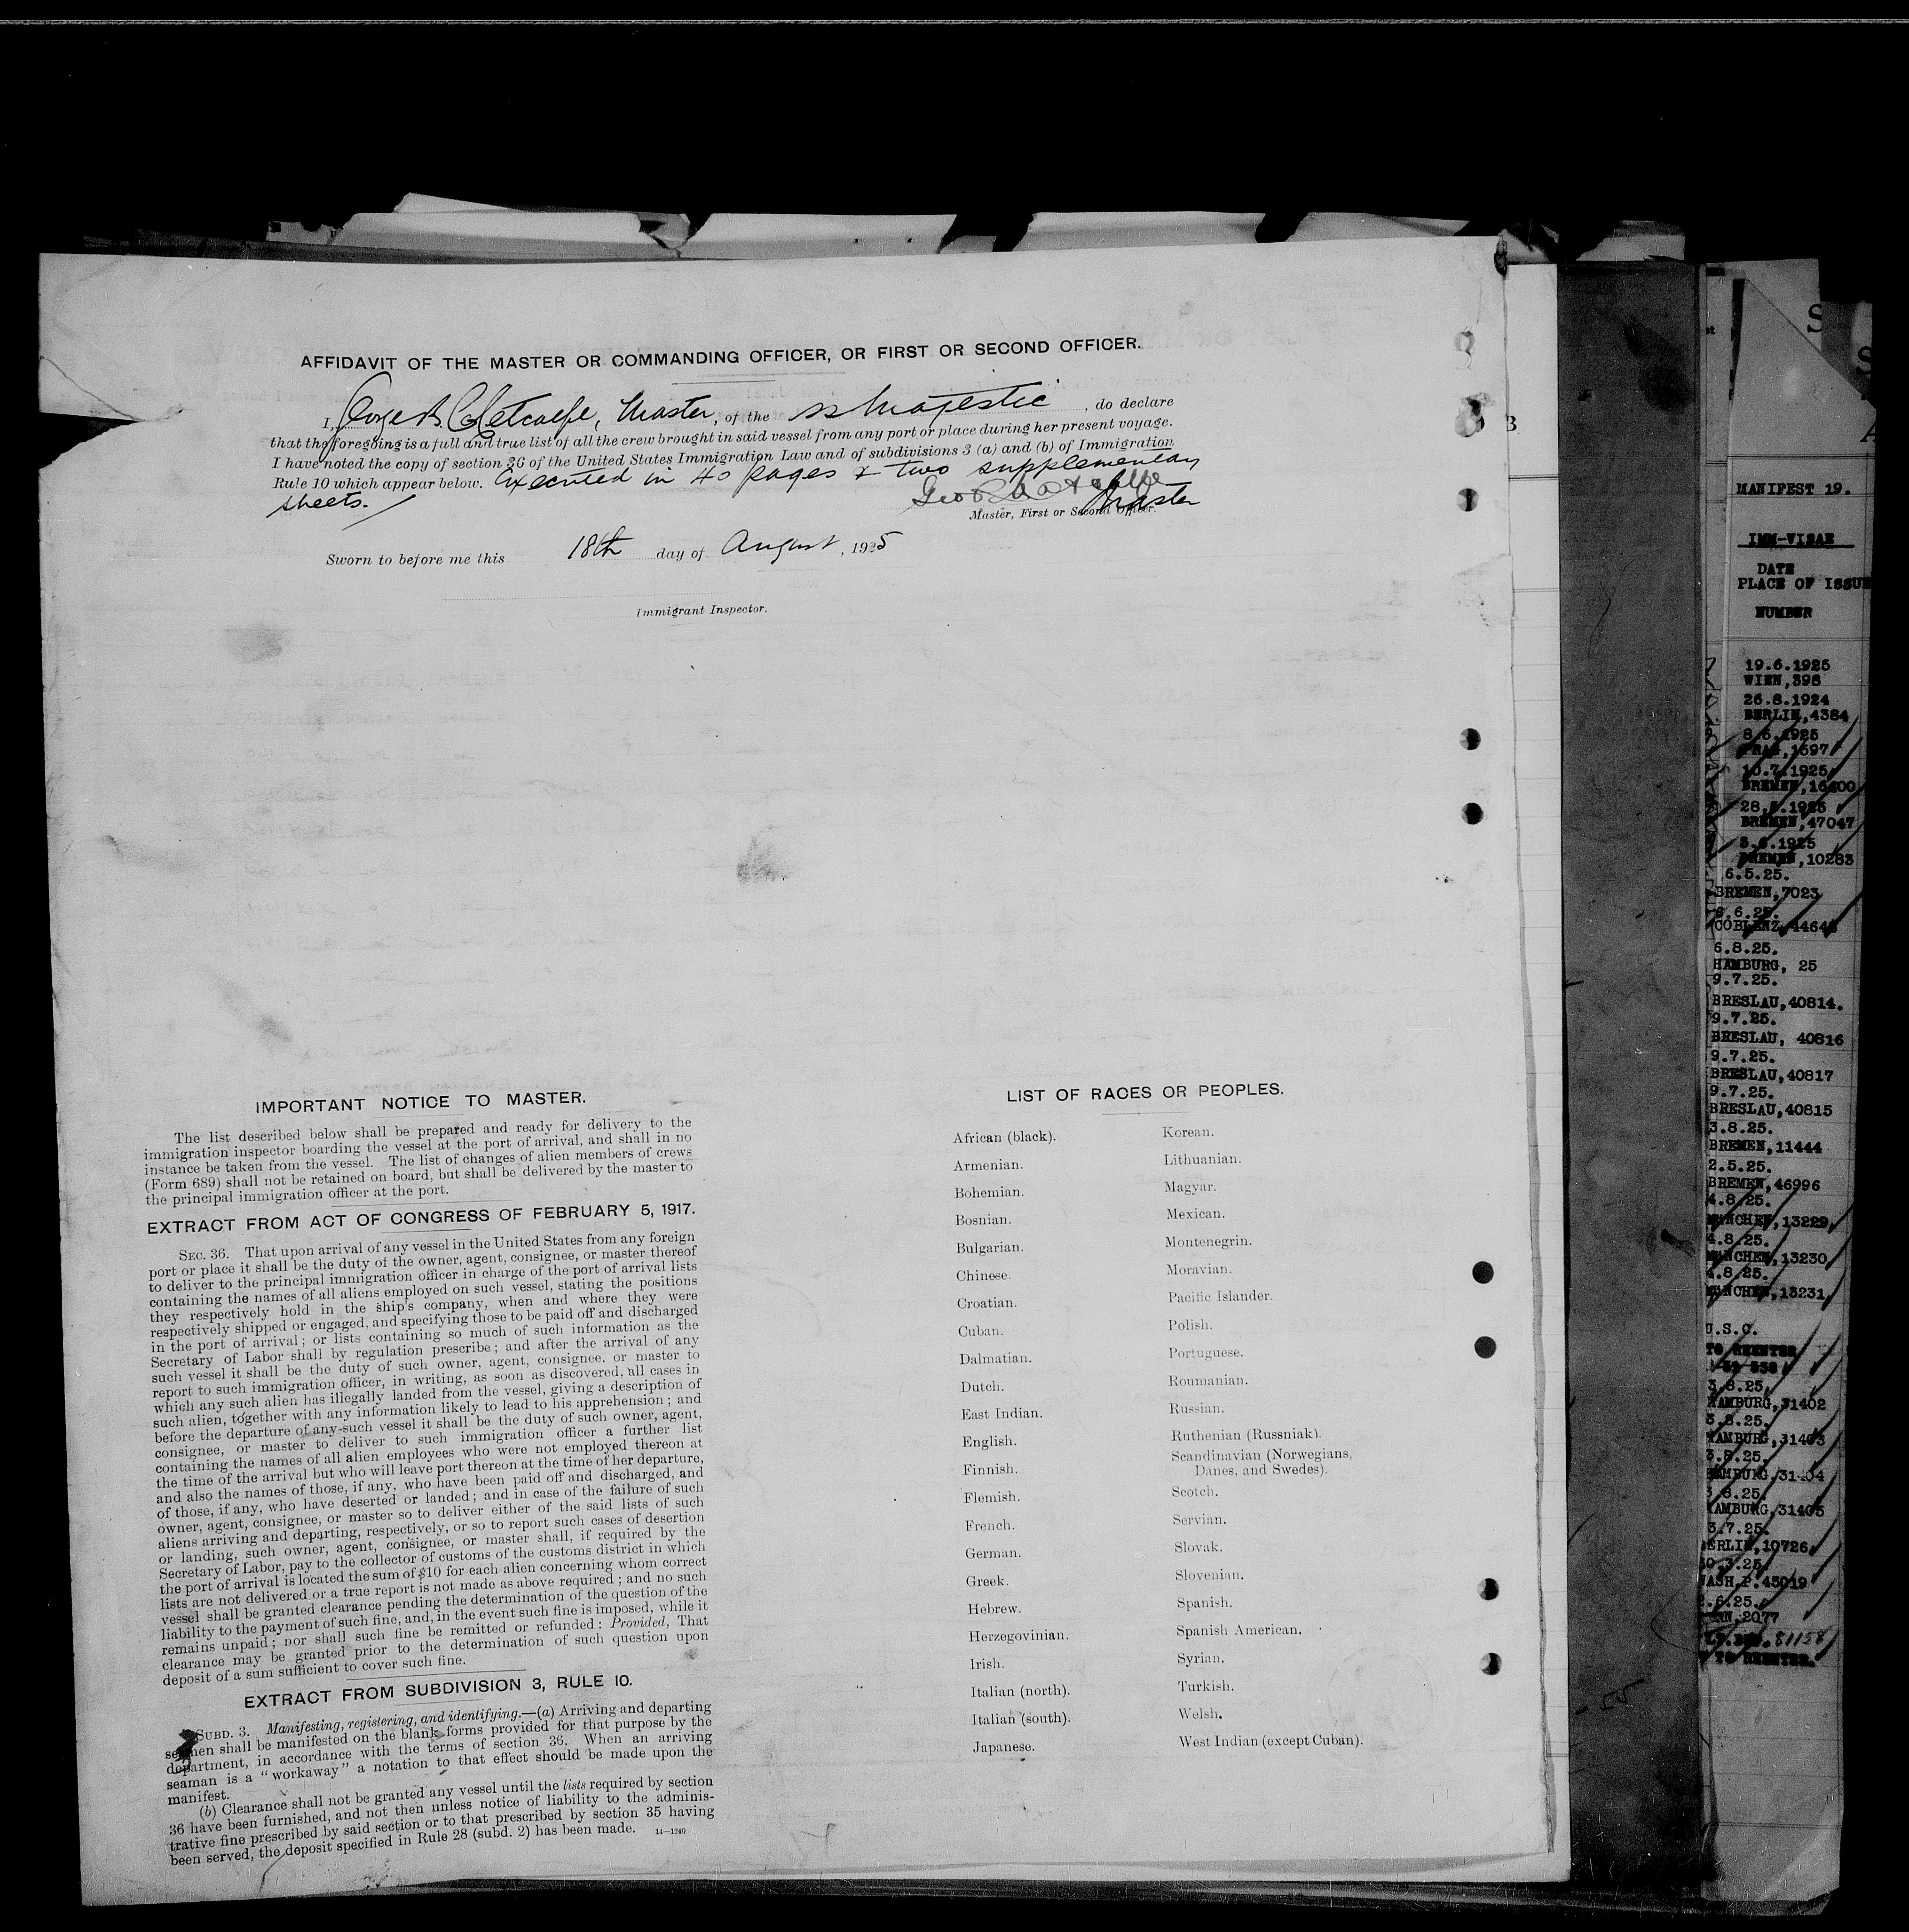 AFFIDAVIT OF THE MASTER OR COMMANDING OFFICER, OR FIRST OR SECOND OFFICER.
I, George R. Metcalfe, Master, of the ss Majestic, do declare
that the foregoing is a full and true list of all the crew brought in said vessel from any port or place during her present voyage.
I have noted the copy of section 36 of the United States Immigration Law and of subdivisions 3 (a) and (b) of Immigration
Rule 10 which appear below. Executed in 40 pages & two supplementary
sheets.
Geo R Metcalfe
Master
Master, First or Second Officer.
Sworn to before me this 18th day of August, 1925
Immigrant Inspector.
IMPORTANT NOTICE TO MASTER.
The list described below shall be prepared and ready for delivery to the
immigration inspector boarding the vessel at the port of arrival, and shall in no
instance be taken from the vessel. The list of changes of alien members of crews
(Form 689) shall not be retained on board, but shall be delivered by the master to
the principal immigration officer at the port.
EXTRACT FROM ACT OF CONGRESS OF FEBRUARY 5, 1917.
SEC. 36. That upon arrival of any vessel in the United States from any foreign
port or place it shall be the duty of the owner, agent, consignee, or master thereof
to deliver to the principal immigration officer in charge of the port of arrival lists
containing the names of all aliens employed on such vessel, stating the positions
they respectively hold in the ship's company, when and where they were
respectively shipped or engaged, and specifying those to be paid off and discharged
in the port of arrival; or lists containing so much of such information as the
Secretary of Labor shall by regulation prescribe; and after the arrival of any
such vessel it shall be the duty of such owner, agent, consignee, or master to
report to such immigration officer, in writing, as soon as discovered, all cases in
which any such alien has illegally landed from the vessel, giving a description of
such alien, together with any information likely to lead to his apprehension; and
before the departure of any such vessel it shall be the duty of such owner, agent,
consignee, or master to deliver to such immigration officer a further list
containing the names of all alien employees who were not employed thereon at
the time of the arrival but who will leave port thereon at the time of her departure,
and also the names of those, if any, who have been paid off and discharged, and
of those, if any, who have deserted or landed; and in case of the failure of such
owner, agent, consignee, or master so to deliver either of the said lists of such
aliens arriving and departing, respectively, or so to report such cases of desertion
or landing, such owner, agent, consignee, or master shall, if required by the
Secretary of Labor, pay to the collector of customs of the customs district in which
the port of arrival is located the sum of $10 for each alien concerning whom correct
lists are not delivered or a true report is not made as above required; and no such
vessel shall be granted clearance pending the determination of the question of the
liability to the payment of such fine, and, in the event such fine is imposed, while it
remains unpaid; nor shall such fine be remitted or refunded: Provided, That
clearance may be granted prior to the determination of such question upon
deposit of a sum sufficient to cover such fine.
EXTRACT FROM SUBDIVISION 3, RULE 10.
SUBD. 3. Manifesting, registering, and identifying.—(a) Arriving and departing
seamen shall be manifested on the blank forms provided for that purpose by the
department, in accordance with the terms of section 36. When an arriving
seaman is a "workaway" a notation to that effect should be made upon the
manifest.
(b) Clearance shall not be granted any vessel until the lists required by section
36 have been furnished, and not then unless notice of liability to the adminis-
trative fine prescribed by said section or to that prescribed by section 35 having
been served, the deposit specified in Rule 28 (subd. 2) has been made. 14—1240
LIST OF RACES OR PEOPLES.
African (black).
Armenian.
Bohemian.
Bosnian.
Bulgarian.
Chinese.
Croatian.
Cuban.
Dalmatian.
Dutch.
East Indian.
English.
Finnish.
Flemish.
French.
German.
Greek.
Hebrew.
Herzegovinian.
Irish.
Italian (north).
Italian (south).
Japanese.
Korean.
Lithuanian.
Magyar.
Mexican.
Montenegrin.
Moravian.
Pacific Islander.
Polish.
Portuguese.
Roumanian.
Russian.
Ruthenian (Russniak).
Scandinavian (Norwegians,
Danes, and Swedes).
Scotch.
Servian.
Slovak.
Slovenian.
Spanish.
Spanish American.
Syrian.
Turkish.
Welsh.
West Indian (except Cuban).
MANIFEST 19.
IMM-VISAE
DATE
PLACE OF ISSUE
NUMBER
19.6.1925
WIEN,398
26.8.1924
BERLIN,4384
8.6.1925
PRAG,1697
10.7.1925
BREMEN,16400
1925
BREMEN,47047
1925
BREMEN,10283
6.5.25.
BREMEN,7023
6.6.25.
COBLENZ
6.8.25.
HAMBURG, 25
9.7.25.
BRESLAU,40814.
9.7.25.
BRESLAU, 40816
9.7.25.
BRESLAU,40817
9.7.25.
BRESLAU,40815
3.8.25.
BREMEN,11444
2.5.25.
BREMEN,46996
4.8.25.
MUNCHEN,13229
4.8.25.
MUNCHEN,13230
4.8.25.
MUNCHEN,13231
U.S.C.
TO REENTER
3.8.25.
HAMBURG,31402
3.8.25.
HAMBURG,31403
3.8.25.
HAMBURG,31404
3.8.25.
HAMBURG,31405
3.7.25.
BERLIN,10726
WASH.P.45019
6.25.
2077
81158
TO REENTER.